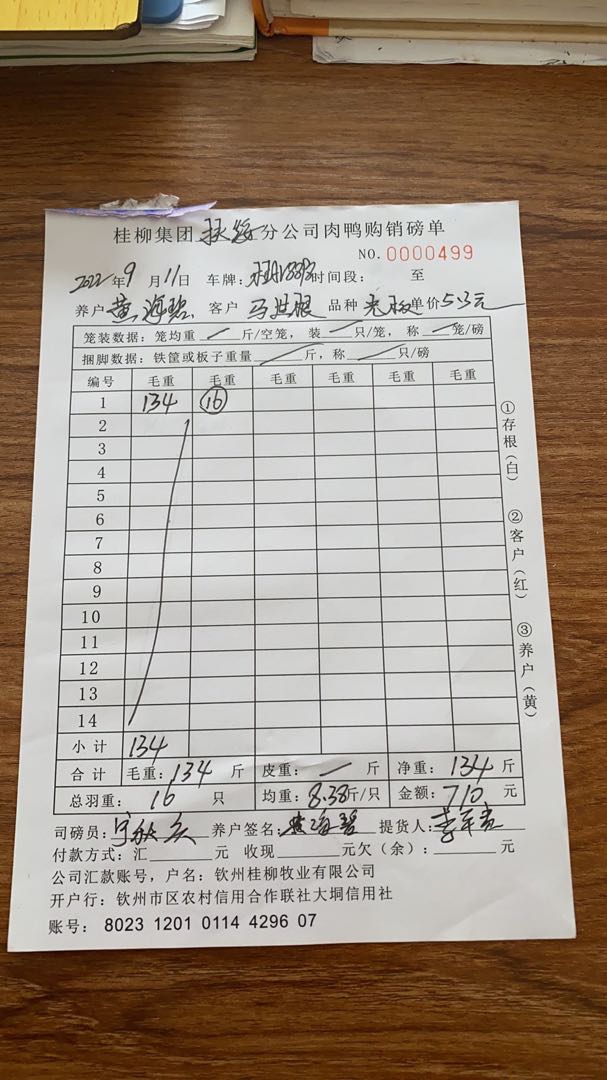 桂柳集团 扶绥 分公司肉鸭购销磅单
NO.0000499
2022年9月11日 车牌: 时间段: 至
养户 黄海碧 客户 马世银 品种 单价5.3元
笼装数据: 笼均重 斤/空笼, 装 只/笼, 称 笼/磅
捆脚数据: 铁筐或板子重量 斤, 称 只/磅
编号 毛重 毛重 毛重 毛重 毛重 毛重
1 134 16
2
3
4
5
6
7
8
9
10
11
12
13
14
小计 134
合计 毛重: 134 斤 皮重: 斤 净重: 134 斤
总羽重: 16 只 均重: 8.38斤/只 金额: 710 元
司磅员: 养户签名: 黄海碧 提货人:
付款方式: 汇 元 收现 元欠(余): 元
公司汇款账号, 户名: 钦州桂柳牧业有限公司
开户行: 钦州市区农村信用合作联社大垌信用社
账号: 8023 1201 0114 4296 07
①存根(白)
②客户(红)
③养户(黄)